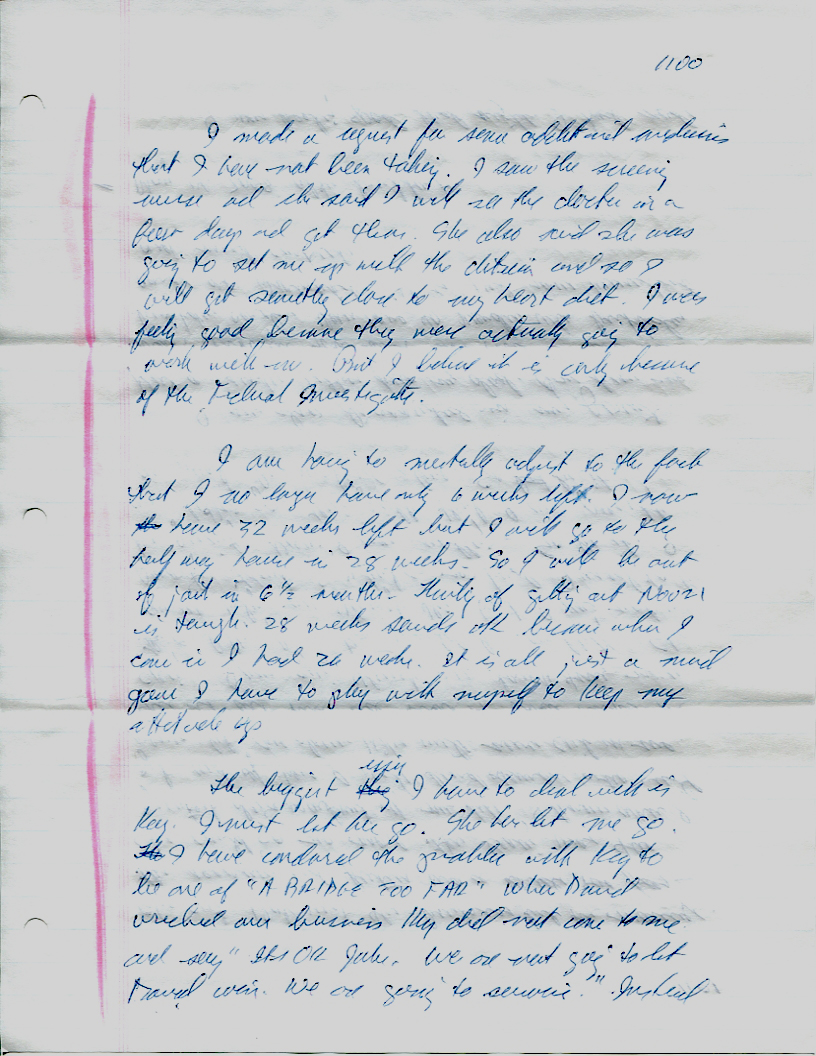 1100
I made a request for some additional medicines
that I have not been taking. I saw the screening
nurse and she said I will see the doctor in a
few days and get them. She also said she was
going to set me up with the dietician and so I
will get something close to my heart diet. I was
feeling good because they were actually going to
work with me. But I believe it is only because
of the Federal Investigation.
I am having to mentally adjust to the fact
that I no longer have only 6 weeks left. I now
have 32 weeks left but I will go to the
half way house in 28 weeks. So I will be out
of jail in 6 1/2 months. Thinking of getting out Nov 21
is tough. 28 weeks sounds ok because when I
came in I had 26 weeks. It is all just a mind
game I have to play with myself to keep my
attitude up
The biggest issue I have to deal with is
Kay. I must let her go. She has let me go.
I have the problem with Kay to
be one of "A BRIDGE TOO FAR" when David
wrecked our business Kay did not come to me
and say "Its OK John. We are not going to let
David win. We are going to survive." Instead